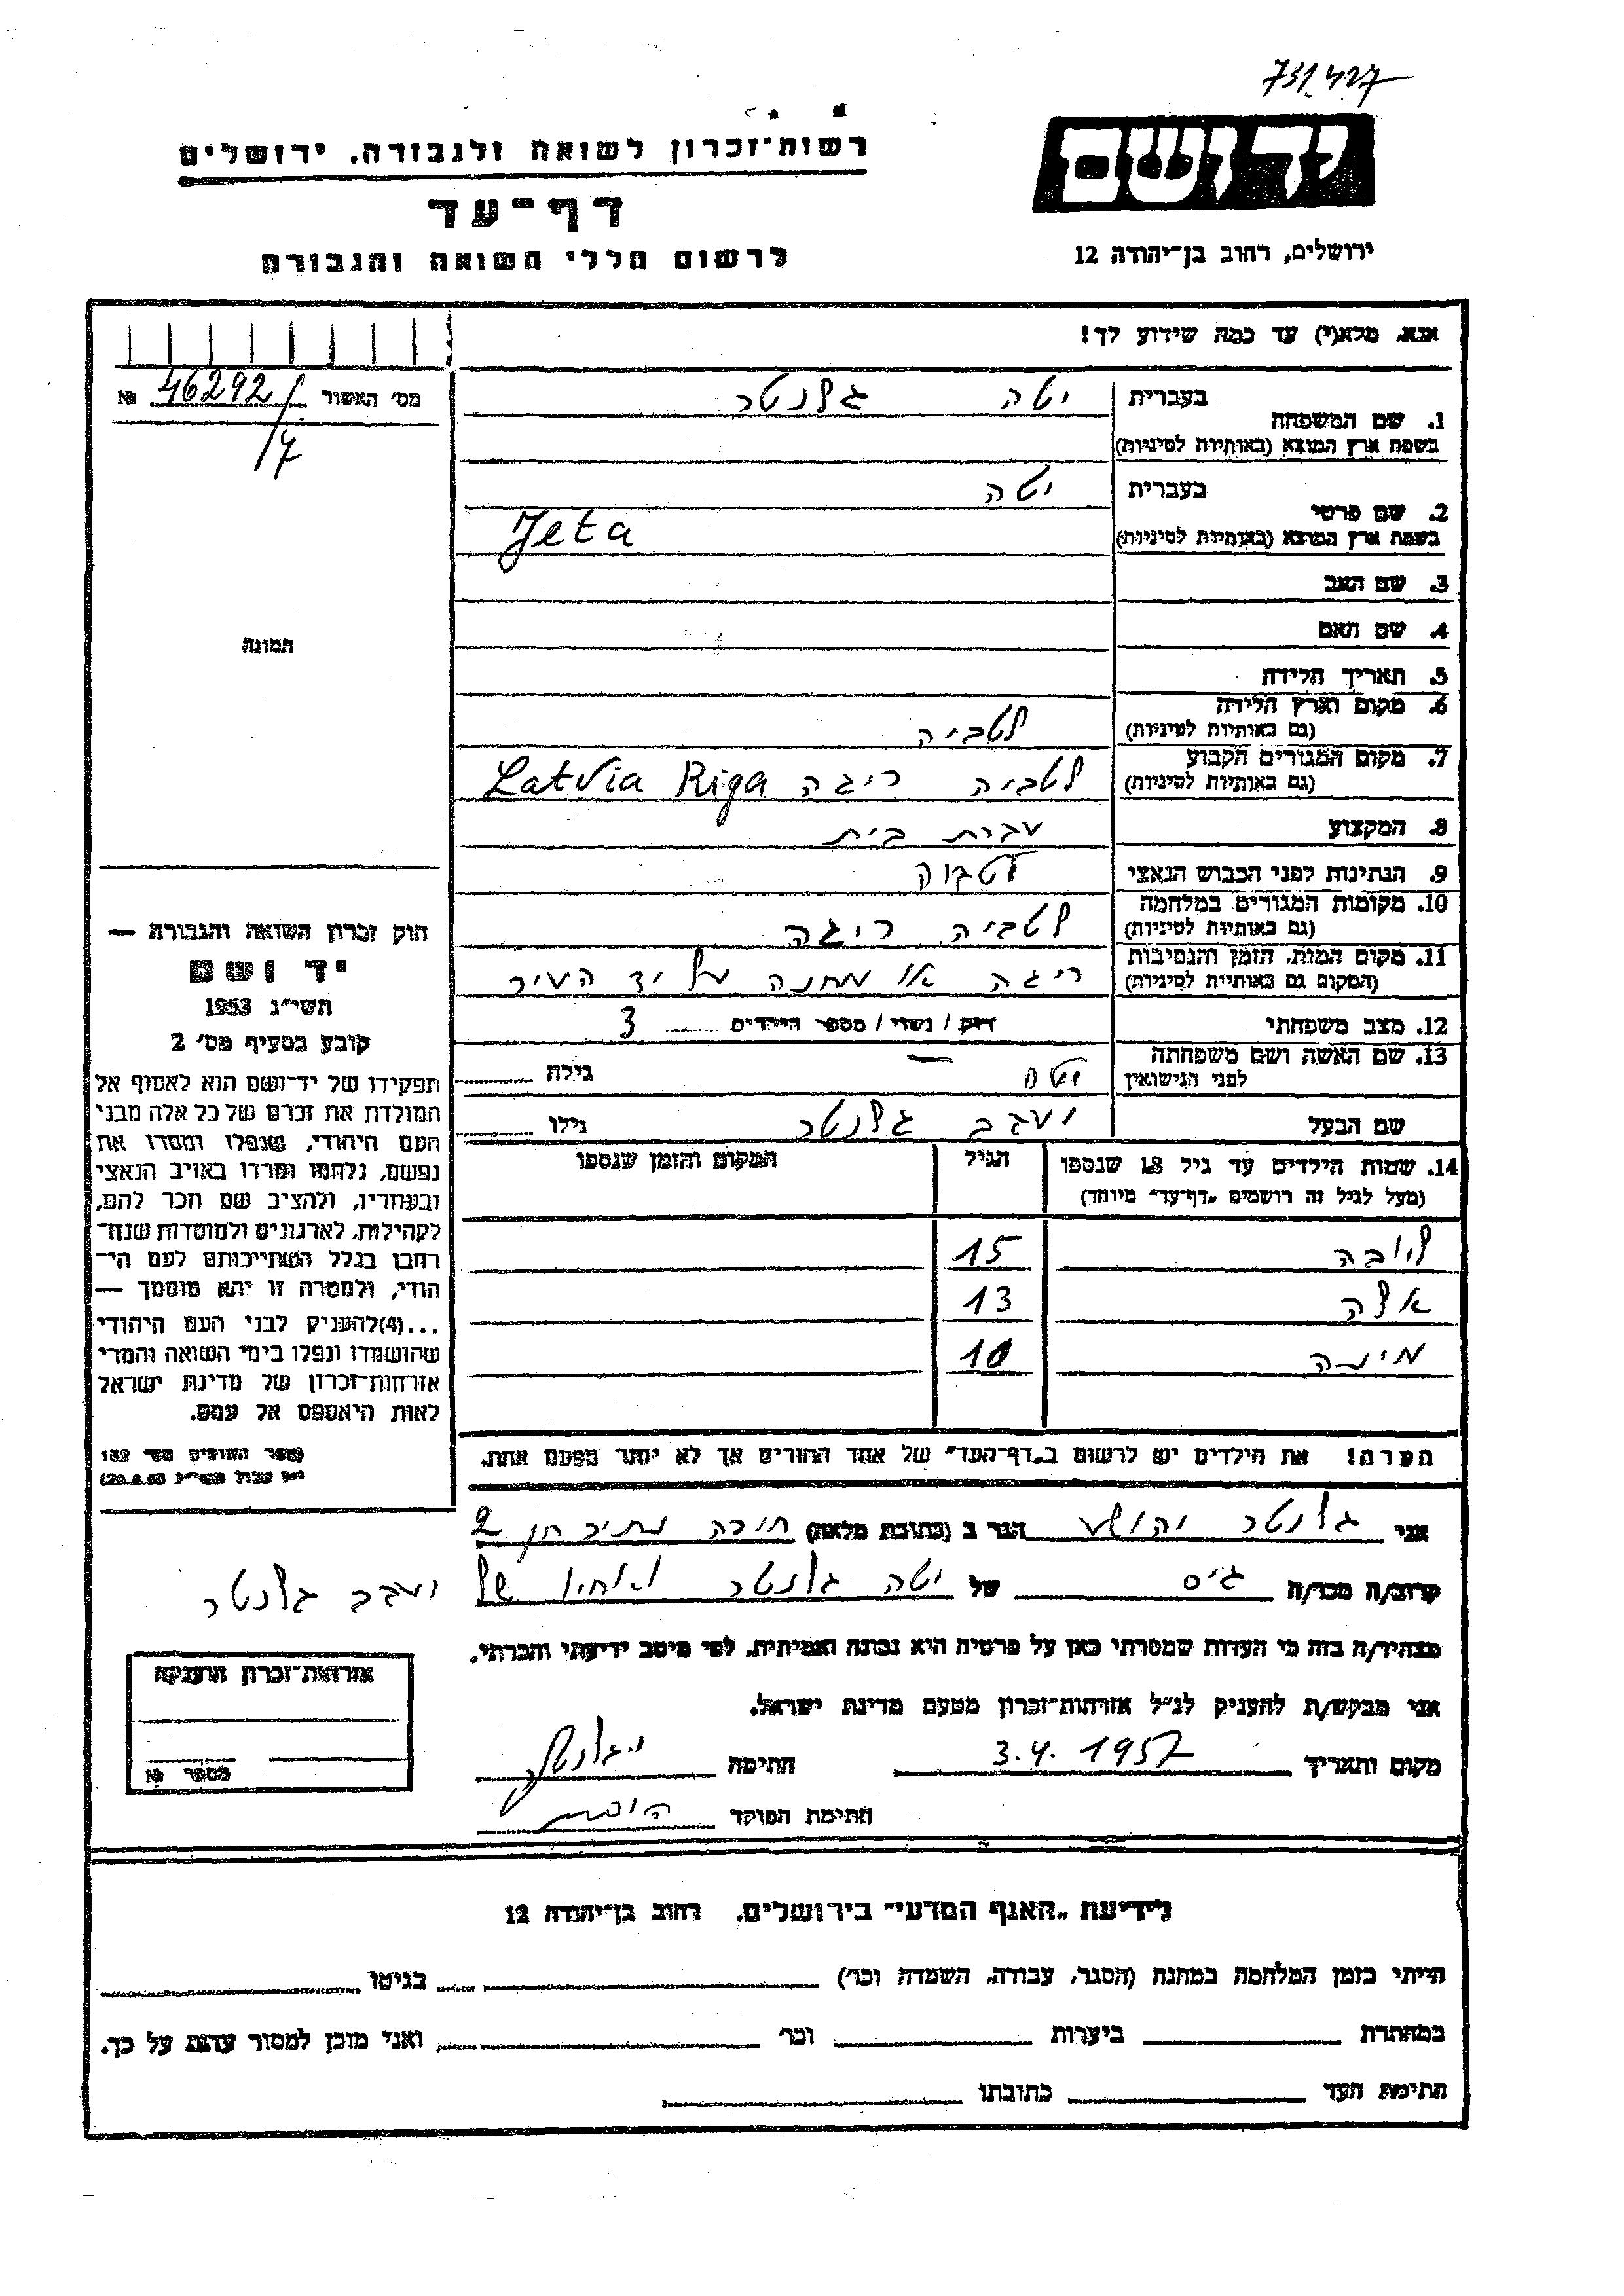 731427
רשות־זכרון לשואה ולגבורה, ירושלים
יד ושם
דף־עד
ירושלים, רחוב בן־יהודה 12
לרשום חללי השואה והגבורה
אנא, מלא(י) עד כמה שידוע לך!
מס׳ האשור 46292/ №
17
1. שם המשפחה
בעברית יטה גלנטר
בשפת ארץ המוצא (באותיות לטיניות)
2. שם פרטי
בעברית יטה
בשפת ארץ המוצא (באותיות לטיניות) Jeta
3. שם האב
4. שם האם
תמונה
5. תאריך הלידה
6. מקום וארץ הלידה
(גם באותיות לטיניות) לטביה
7. מקום המגורים הקבוע
(גם באותיות לטיניות) לטביה ריגה Latvia Riga
8. המקצוע עקרת בית
9. הנתינות לפני הכבוש הנאצי
10. מקומות המגורים במלחמה
(גם באותיות לטיניות) לטביה ריגה
11. מקום המות, הזמן והנסיבות
(המקום גם באותיות לטיניות) ריגה או מחנה על יד העיר
12. מצב משפחתי רווק / נשוי / מספר הילדים 3
13. שם האשה ושם משפחתה
לפני הנישואין יטה — גילה
שם הבעל יעקב גלנטר גילו
14. שמות הילדים עד גיל 18 שנספו
(מעל לגיל זה רושמים „דף־עד״ מיוחד)
הגיל
המקום והזמן שנספו
ליובה 15
אלה 13
מינה 10
הערה! את הילדים יש לרשום ב„דף־העד״ של אחד ההורים אך לא יותר מפעם אחת.
חוק זכרון השואה והגבורה —
יד ושם
תשי״ג 1953
קובע בסעיף מס׳ 2
תפקידו של יד־ושם הוא לאסוף אל
המולדת את זכרם של כל אלה מבני
העם היהודי, שנפלו ומסרו את
נפשם, נלחמו ומרדו באויב הנאצי
ובעוזריו, ולהציב שם וזכר להם,
לקהילות, לארגונים ולמוסדות שנח־
רבו בגלל השתייכותם לעם הי־
הודי, ולמטרה זו יהא מוסמך —
...(4)להעניק לבני העם היהודי
שהושמדו ונפלו בימי השואה והמרי
אזרחות־זכרון של מדינת ישראל
לאות היאספם אל עמם.
(ספר החוקים מס׳ 132
אני גלנטר יהושע הגר ב (כתובת מלאה) חדרה נתיב חן 2
קרוב/ה מכר/ה גיס של יטה גלנטר ואחיו של
יעקב גלנטר
מצהיר/ה בזה כי העדות שמסרתי כאן על פרטיה היא נכונה ואמיתית, לפי מיטב ידיעתי והכרתי.
אני מבקש/ת להעניק לנ״ל אזרחות־זכרון מטעם מדינת ישראל.
מקום ותאריך 3.4.1957 חתימה י גלנטר
חתימת הפוקד
אזרחות־זכרון הוענקה
מספר №
לידיעת „האגף המדעי״ בירושלים, רחוב בן־יהודה 12
הייתי בזמן המלחמה במחנה (הסגר, עבודה, השמדה וכו׳) בגיטו
במחתרת ביערות וכו׳ ואני מוכן למסור עדות על כך.
חתימת העד כתובתו